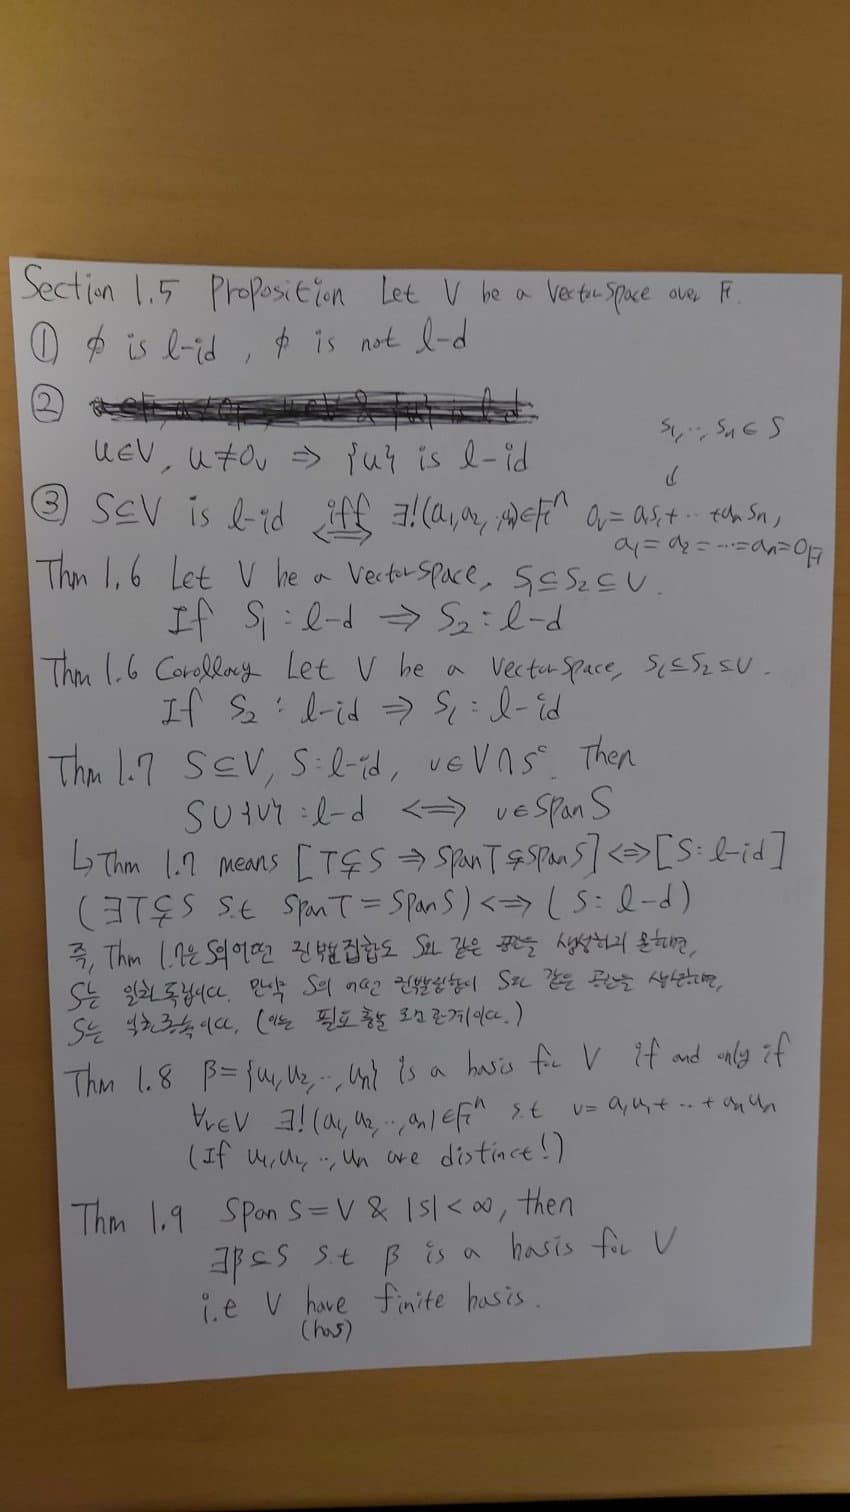 Section 1.5 Proposition Let V be a Vector Space over F.
① ϕ is l-id, ϕ is not l-d
②
u∈V, u≠0_V ⇒ {u} is l-id
s₁, ‥, sₙ ∈ S
↓
③ S⊆V is l-id iff ⟺ ∃!(a₁, a₂, ‥, aₙ)∈Fⁿ 0_V = a₁s₁+ ‥ +aₙsₙ,
a₁ = a₂ = ‥ = aₙ = 0_F
Thm 1.6 Let V be a Vector Space, S₁⊆S₂⊆V.
If S₁ : l-d ⇒ S₂ : l-d
Thm 1.6 Corollary Let V be a Vector Space, S₁⊆S₂⊆V.
If S₂ : l-id ⇒ S₁ : l-id
Thm 1.7 S⊆V, S : l-id, v∈V∩Sᶜ. Then
S∪{v} : l-d ⟺ v∈Span S
↳ Thm 1.7 means [T⊊S ⇒ Span T⊊Span S] ⟺ [S : l-id]
(∃T⊊S s.t Span T = Span S) ⟺ (S : l-d)
즉, Thm 1.7은 S의 어떤 진부분집합도 S와 같은 공간을 생성하지 못하면,
S는 일차 독립이다. 만약 S의 어떤 진부분집합이 S와 같은 공간을 생성하면,
S는 일차종속이다. (이는 필요충분조건 관계이다.)
Thm 1.8 β={u₁, u₂, ‥, uₙ} is a basis for V if and only if
∀v∈V ∃!(a₁, a₂, ‥, aₙ)∈Fⁿ s.t v = a₁u₁+ ‥ + aₙuₙ
(If u₁, u₂, ‥, uₙ are distinct!)
Thm 1.9 Span S = V & |S| < ∞, then
∃β⊆S s.t β is a basis for V
i.e V have finite basis.
(has)